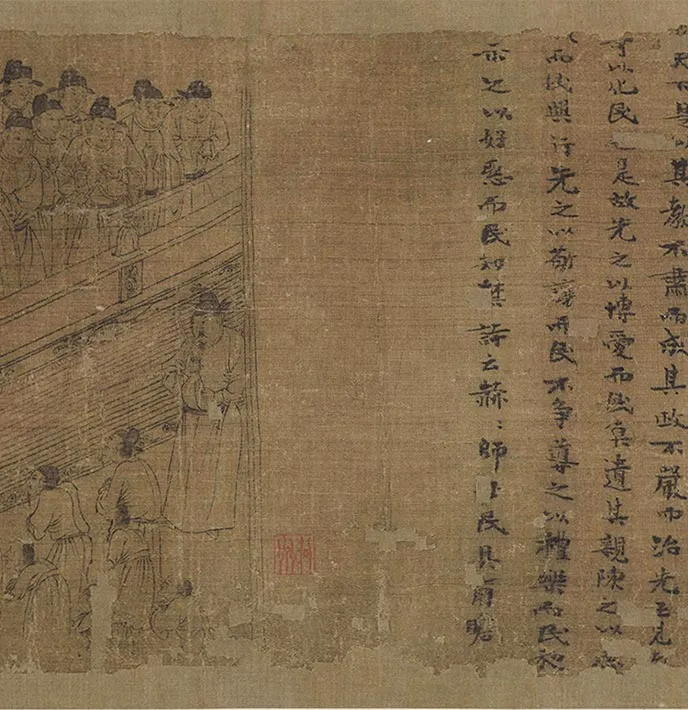 天下是以其教不肅而成其政不嚴而治先王見
可以化民也是故先之以博愛而民莫遺其親陳之以
而民興行先之以敬讓而民不爭導之以禮樂而民和
示之以好惡而民知禁詩云赫〻師尹民具爾瞻